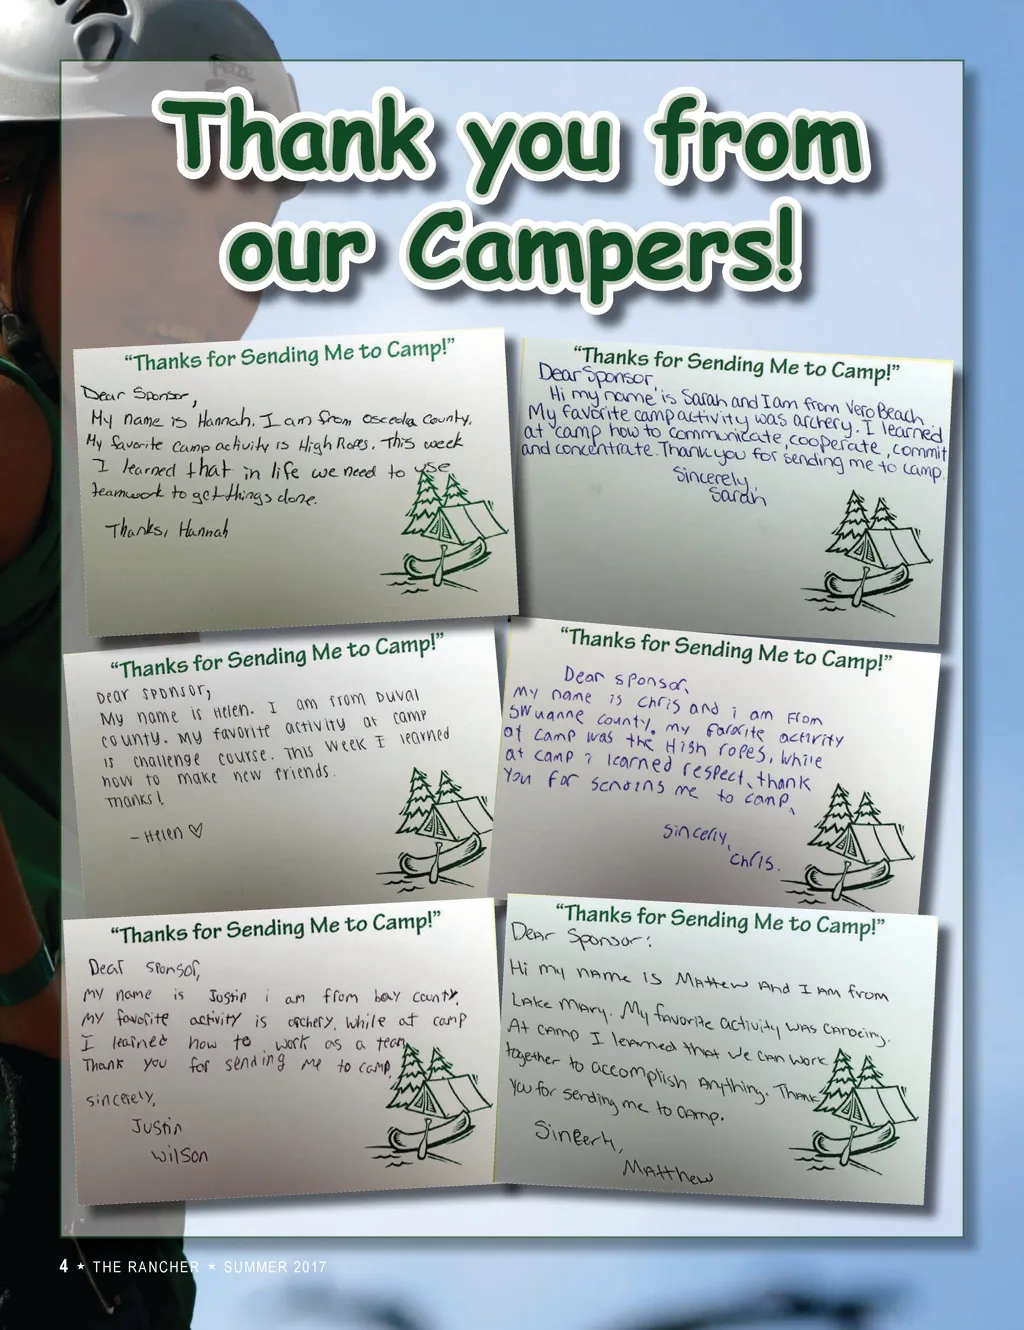 Thank you from
our Campers!
"Thanks for Sending Me to Camp!"
Dear Sponsor,
My name is Hannah. I am from Osceola County.
My favorite camp activity is High Ropes. This week
I learned that in life we need to use
teamwork to get things done.
Thanks, Hannah
"Thanks for Sending Me to Camp!"
Dear Sponsor,
Hi my name is Sarah and I am from Vero Beach.
My favorite camp activity was archery. I learned
at camp how to communicate, cooperate, commit
and concentrate. Thank you for sending me to camp.
Sincerely,
Sarah
"Thanks for Sending Me to Camp!"
Dear sponsor,
My name is Helen. I am from Duval
county. My favorite activity at camp
is challenge course. This week I learned
how to make new friends.
Thanks!
- Helen ♡
"Thanks for Sending Me to Camp!"
Dear sponsor,
My name is Chris and i am From
Swuanne county. my favorite activity
at camp was the High ropes. While
at camp i learned respect. thank
You for sending me to camp.
sincerly,
Chris.
"Thanks for Sending Me to Camp!"
Dear sponsor,
My name is Justin i am from bay county.
My favorite activity is archery. While at camp
I learned how to work as a team.
Thank you for sending me to camp.
sincerely,
Justin
Wilson
"Thanks for Sending Me to Camp!"
Dear Sponsor:
Hi my name is Matthew and I am from
Lake Mary. My favorite activity was canoeing.
At camp I learned that we can work
together to accomplish anything. Thank
you for sending me to camp.
Sincerly,
Matthew
4 ★ THE RANCHER ★ SUMMER 2017